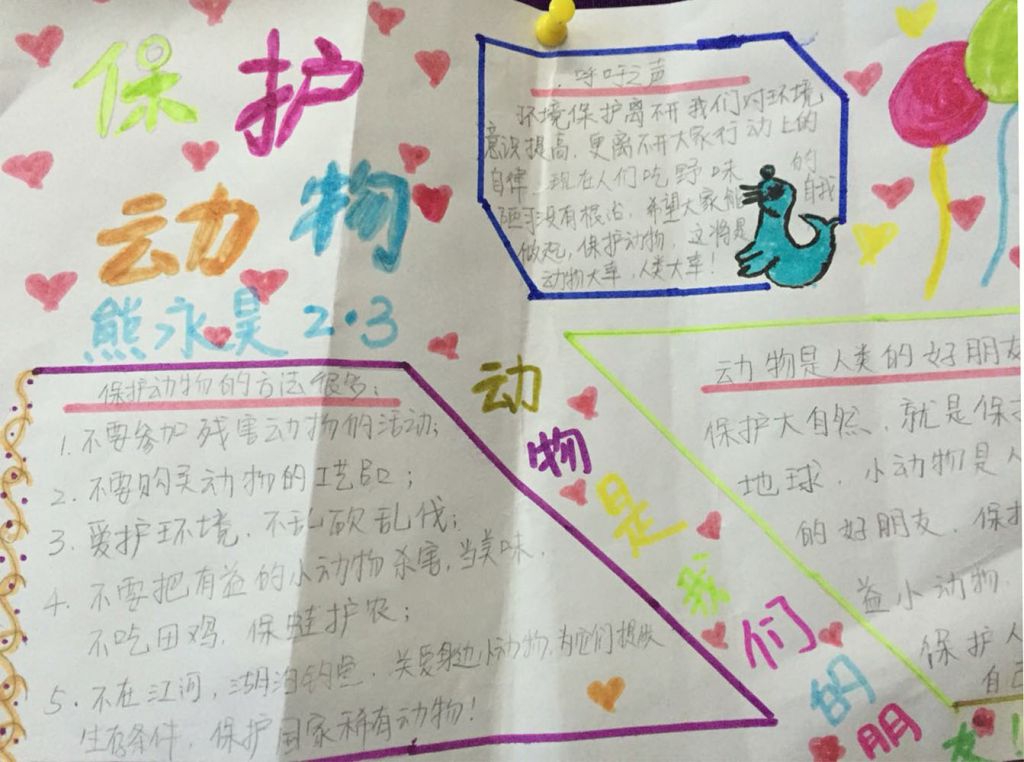 保护
动物
熊永昊 2·3
呼吁之声
环境保护离不开我们对环境
意识提高,更离不开大家行动上的
自律。现在人们吃野味的
陋习没有根治,希望大家能自我
做起,保护动物,这将是
动物大幸,人类大幸!
保护动物的方法很多:
1.不要参加残害动物的活动;
2.不要购买动物的工艺品;
3.爱护环境,不乱砍乱伐;
4.不要把有益的小动物杀害,当美味,
不吃田鸡,保蛙护农;
5.不在江河,湖泊钓鱼,关爱身边小动物,为它们提供
生存条件,保护国家稀有动物!
动物是我们的朋友!
动物是人类的好朋友
保护大自然,就是保护
地球,小动物是人
的好朋友,保护
益小动物,
保护人
自己